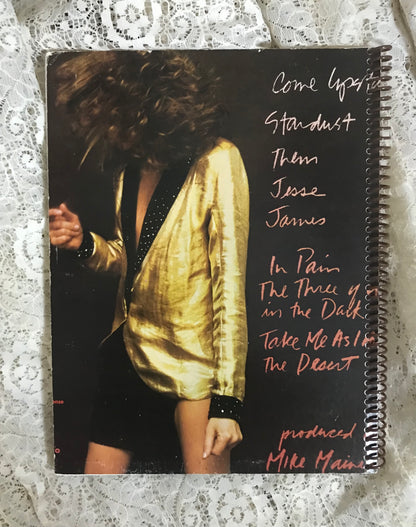 Come Upsta
Stardust
Them
Jesse
James
In Pain
The Three of
in the Dark
Take Me As I
The Desert
produced
Mike Maini